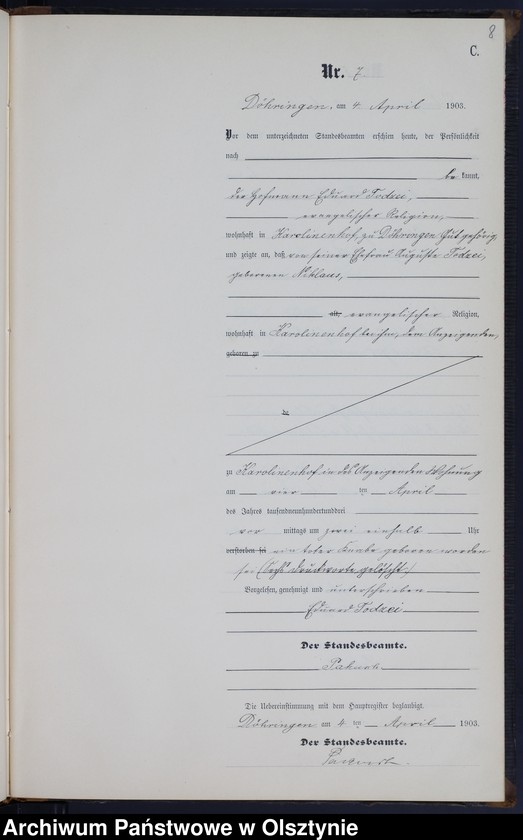 8
C.
Nr. 7
Döhringen, am 4. April 1903.
Vor dem unterzeichneten Standesbeamten erschien heute, der Persönlichkeit
nach
be kannt,
der Hofmann Eduard Todzei,
evangelischer Religion,
wohnhaft in Karolinenhof, zu Döhringen Gut gehörig
und zeigte an, daß von seiner Ehefrau Auguste Todzei,
geborenen Niklaus,
alt, evangelischer Religion,
wohnhaft in Karolinenhof bei ihm, dem Anzeigenden,
geboren zu
de
zu Karolinenhof in des Anzeigenden Wohnung
am vier ten April
des Jahres tausendneunhundertunddrei
vor mittags um zwei einhalb Uhr
verstorben sei ein toter Knabe geboren worden
sei (Sechs Druckworte gelöscht.)
Vorgelesen, genehmigt und unterschrieben
Eduard Todzei
Der Standesbeamte.
Die Uebereinstimmung mit dem Hauptregister beglaubigt.
Döhringen am 4 ten April 1903.
Der Standesbeamte.
Archiwum Państwowe w Olsztynie